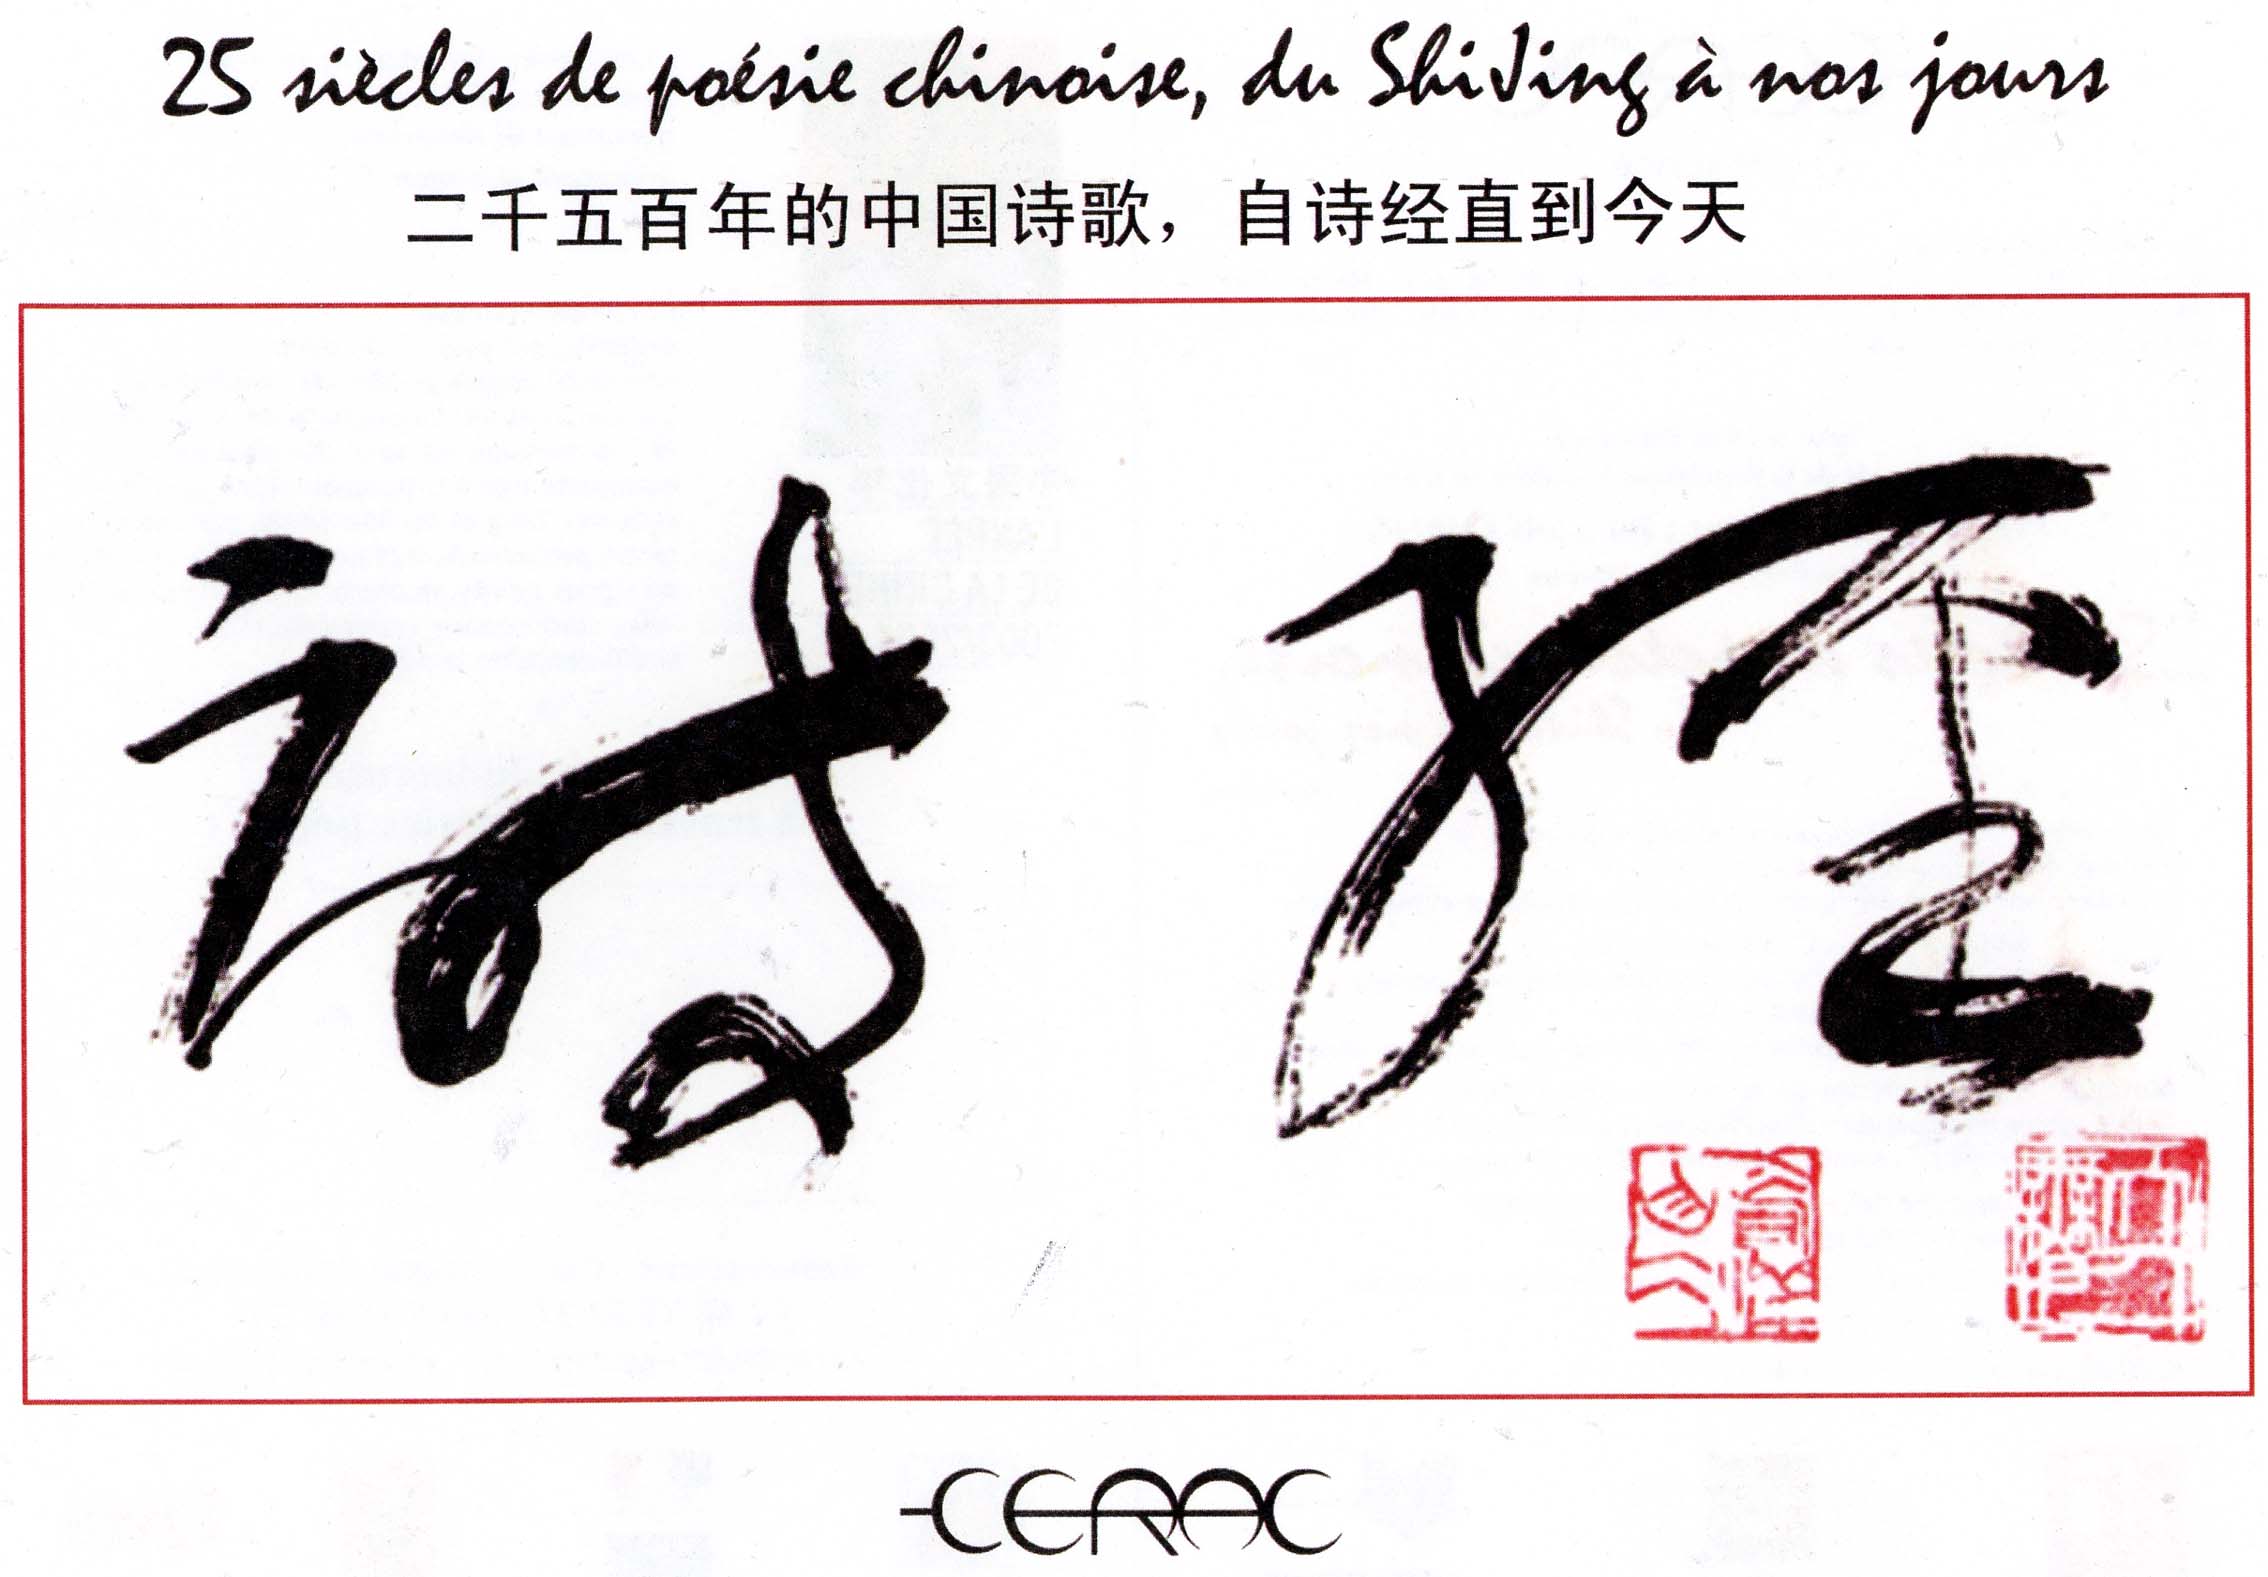 25 siècles de poésie chinoise, du ShiJing à nos jours
二千五百年的中国诗歌，自诗经直到今天
诗经
CERAC